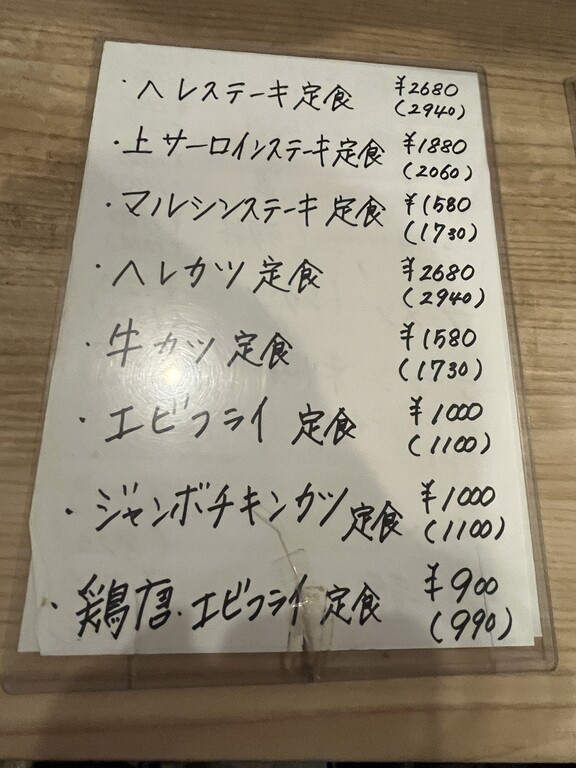 ・ヘレステーキ定食 ¥2680
(2940)
・上サーロインステーキ定食 ¥1880
(2060)
・マルシンステーキ定食 ¥1580
(1730)
・ヘレカツ定食 ¥2680
(2940)
・牛カツ定食 ¥1580
(1730)
・エビフライ定食 ¥1000
(1100)
・ジャンボチキンカツ定食 ¥1000
(1100)
・鶏唐・エビフライ定食 ¥900
(990)